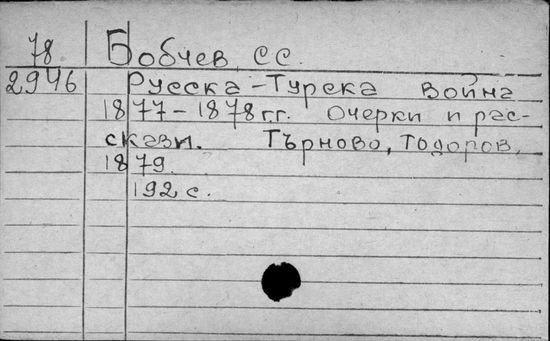 78 Бобчев, С С.
2946 Русска-Турска война
1877-1878 г.г. Очерки и рас-
скази. Търново, Тодоров,
1879.
192 с.